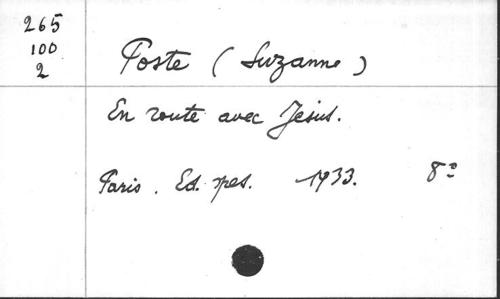 265
100
2
Poste (Suzanne)
En route avec Jésus.
Paris. Ed. spes. 1933. 8°